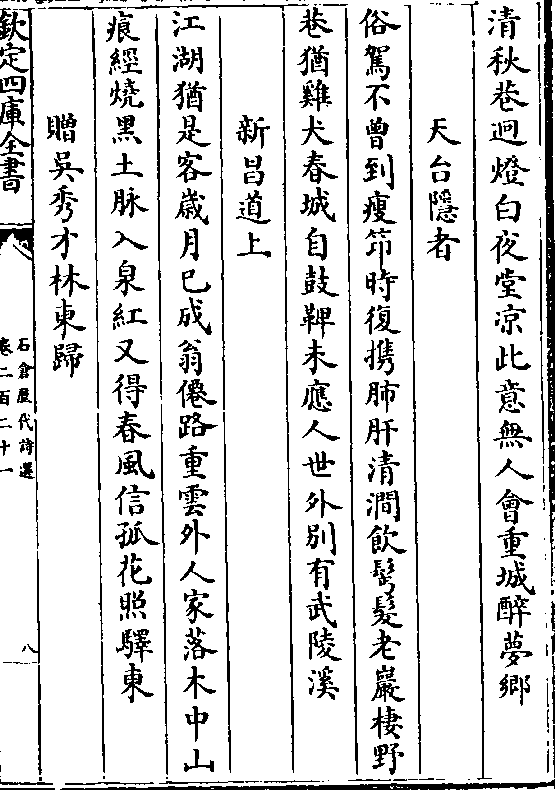 清秋巷迥燈白夜堂凉此意無人會重城醉夢鄉
天台隱者
俗駕不曾到瘦笻時復携肺肝清澗飲髩髮老巖棲野
巷猶雞犬春城自鼓鞞未應人世外别有武陵溪
新昌道上
江湖猶是客歳月已成翁僊路重雲外人家落木中山
痕經燒黑土脉入泉紅又得春風信孤花照驛東
贈吳秀才林東歸
欽定四庫全書
石倉歴代詩選
卷二百二十一
八